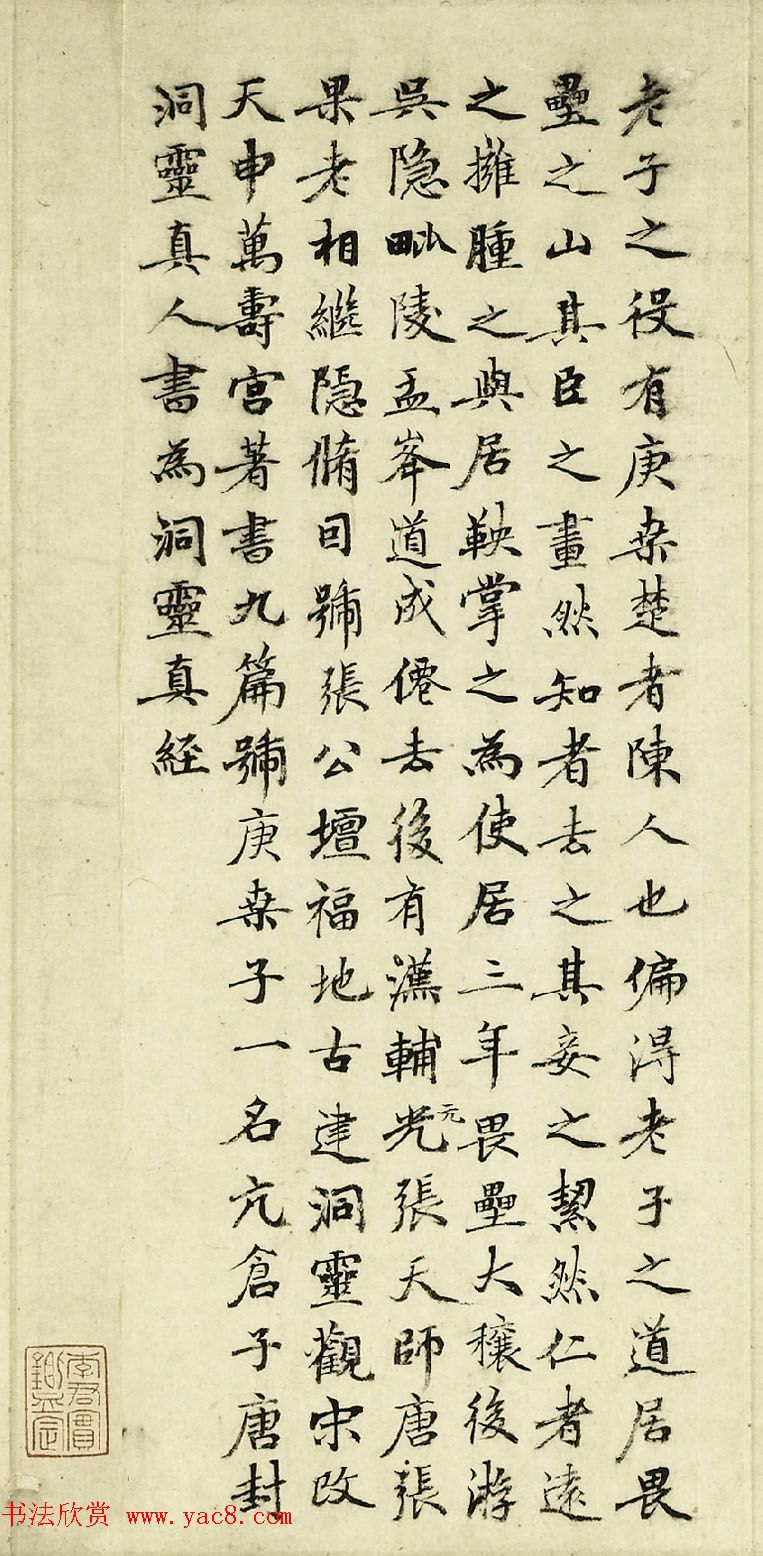 老子之役有庚桒楚者陳人也偏淂老子之道居畏
壘之山其臣之畫然知者去之其妾之絜然仁者遠
之擁腫之與居鞅掌之為使居三年畏壘大穰後游
吳隐毗陵孟峯道成僊去後有漢輔光元張天師唐張
果老相繼隠脩因號張公壇福地古建洞靈觀宋改
天申萬壽宮著書九篇號庚桒子一名亢倉子唐封
洞靈真人書為洞靈真經
李君實
鑒定
书法欣赏 www.yac8.com